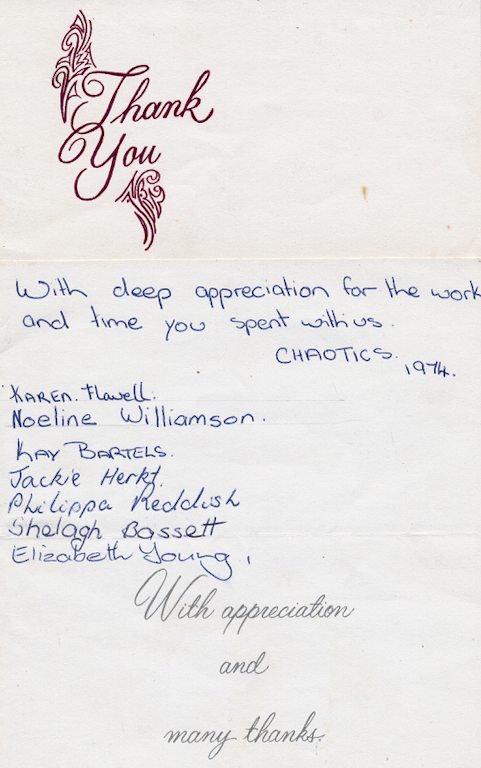 Thank
You
With deep appreciation for the work
and time you spent with us.
CHAOTICS. 1974.
KAREN. Flavell.
Noeline Williamson.
KAY BARTELS.
Jackie Herkt.
Philippa Reddish
Shelagh Bassett
Elizabeth Young,
With appreciation
and
many thanks.